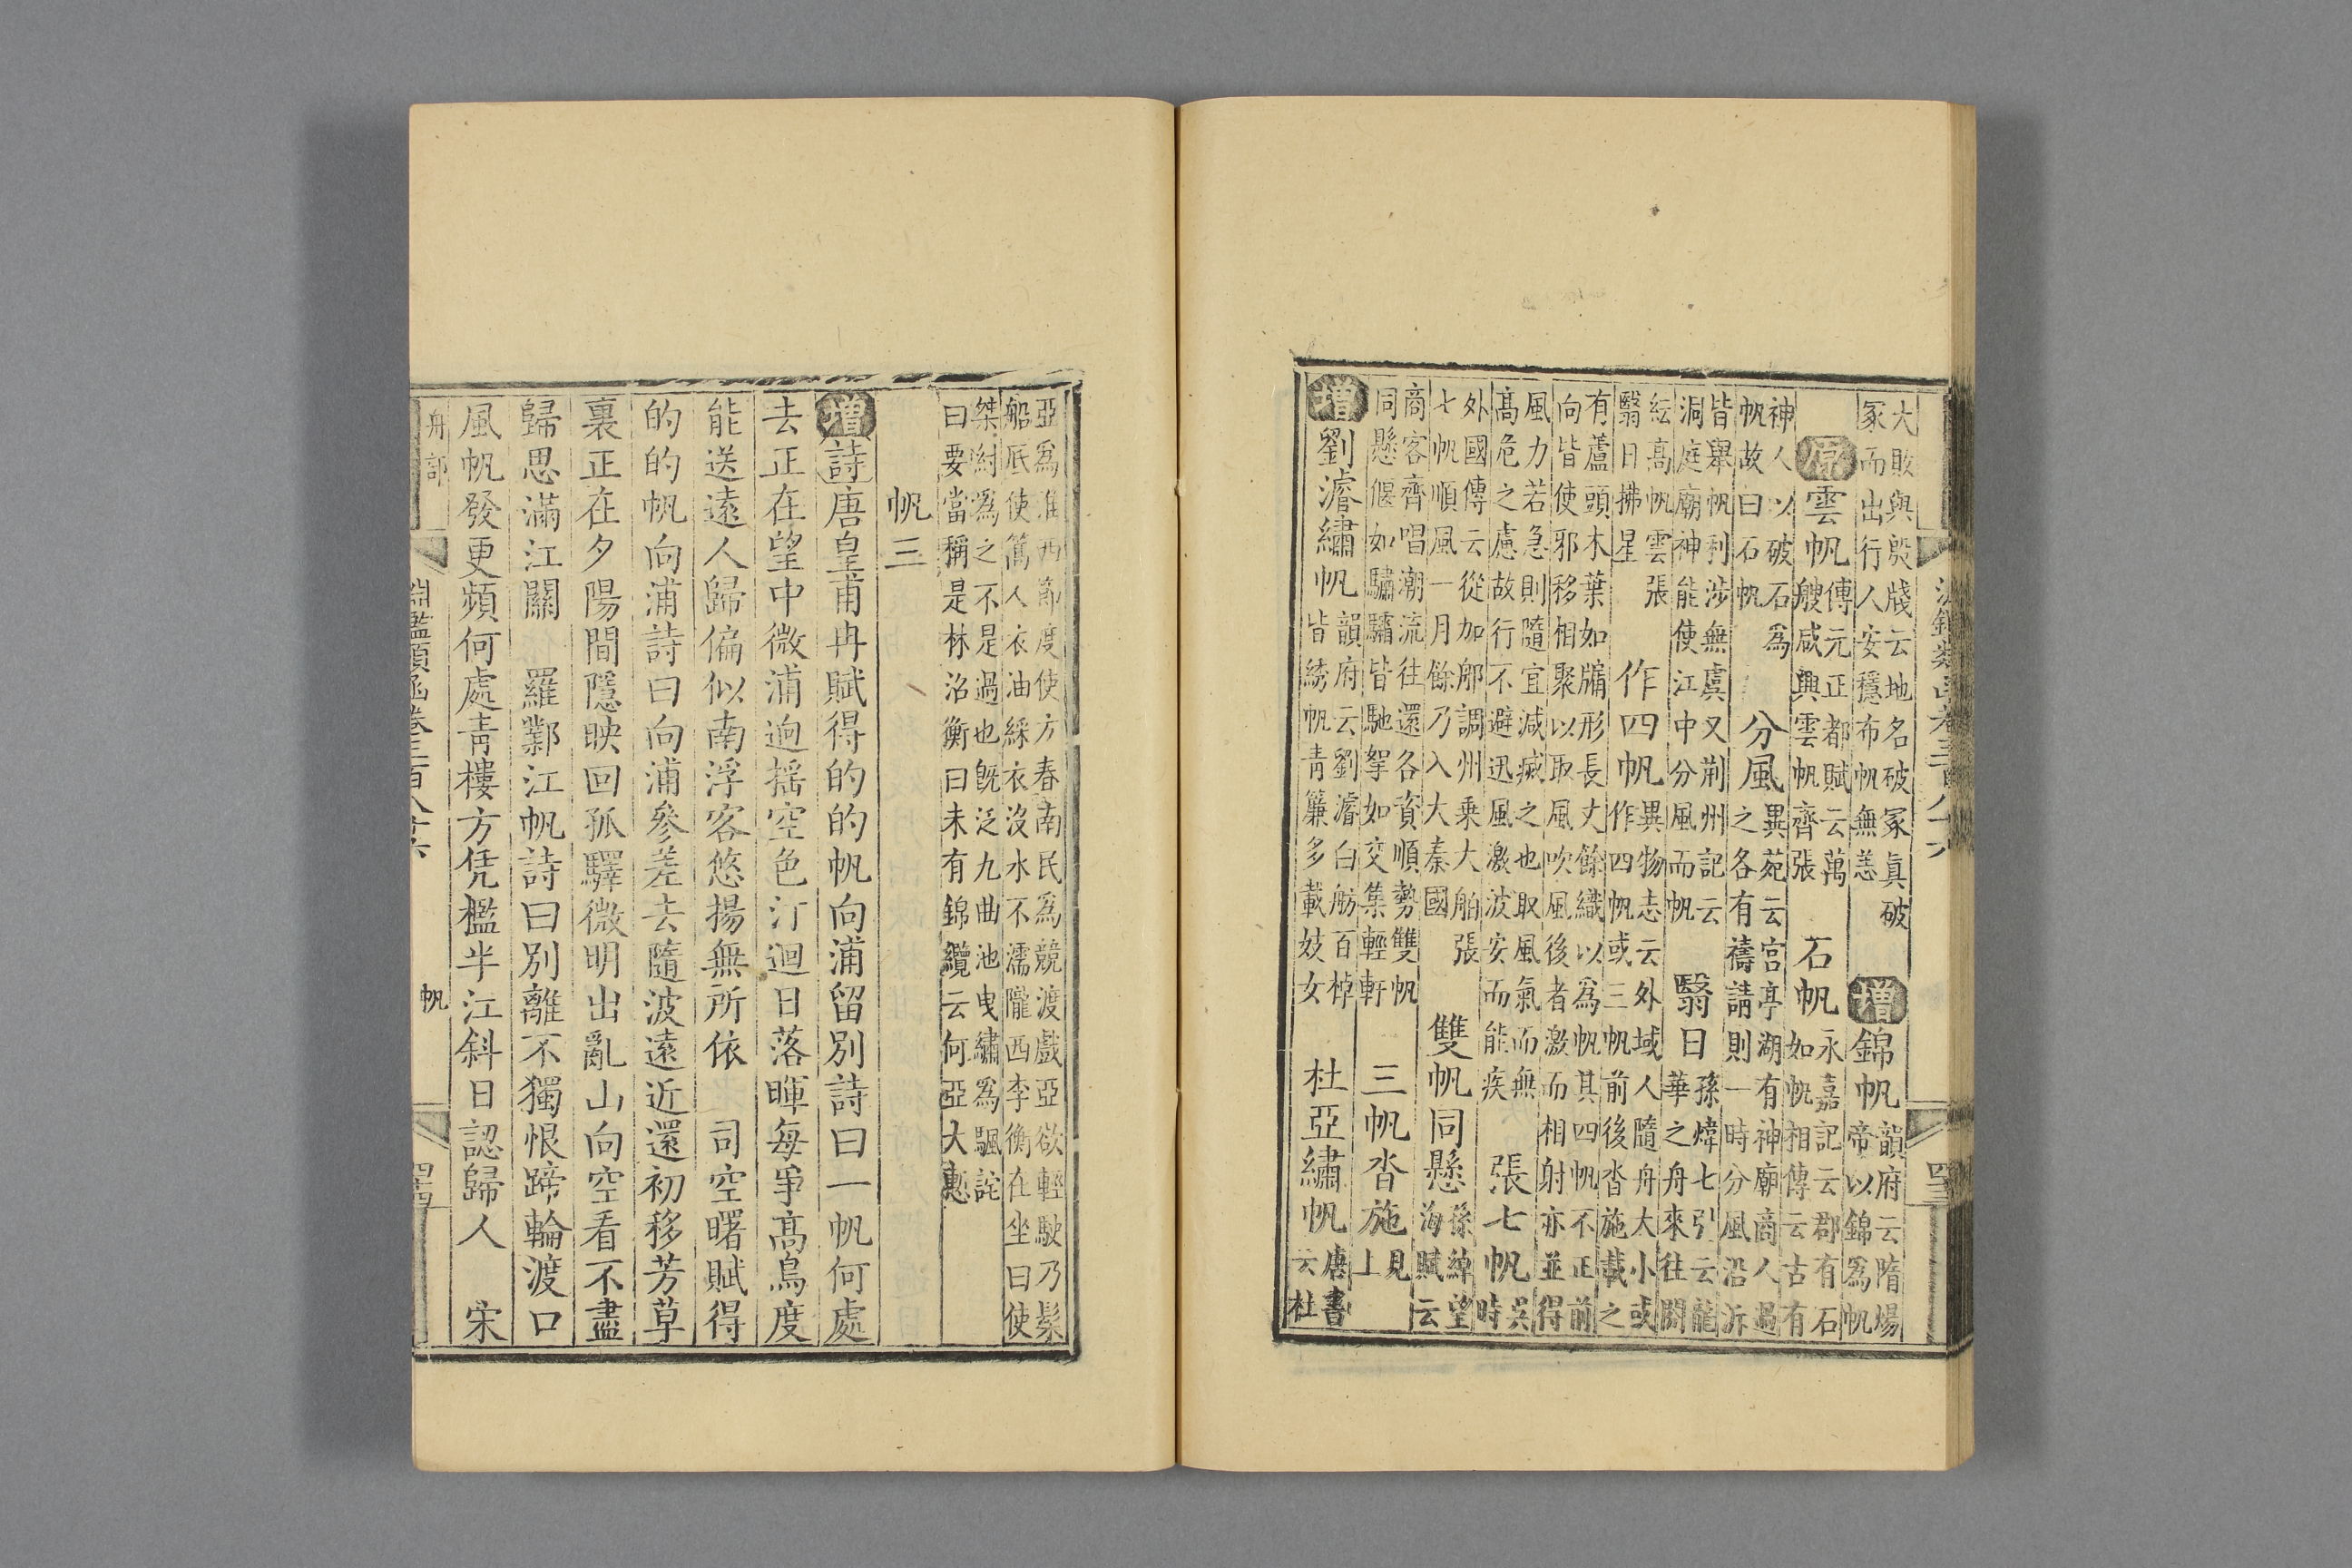 大敗與殷牋云地名破冢眞破
冢而出行人安穩布帆無恙
增錦帆
韻府云隋場
帝以錦爲帆
原雲帆
傳元正都賦云萬
艘咸興雲帆齊張
石帆
永嘉記云郡有石
如帆相傳云古有
神人以破石爲
帆故曰石帆
分風
異苑云宮亭湖有神廟商人過
之各有禱請則一時分風沿泝
皆舉帆利涉無虞又荆州記云
洞庭廟神能使江中分風而帆
翳日
孫煒七引云龍
華之舟來往鬬
紜髙帆雲張
翳日拂星
作四帆
異物志云外域人隨舟大小或
作四帆或三帆前後沓施載之
有蘆頭木葉如牖形長丈餘織以爲帆其四帆不正前
向皆使邪移相聚以取風吹風後者激而相射亦並得
風力若急則隨宜減㓕之也取風氣而無
髙危之慮故行不避迅風激波安而能疾
張七帆
吴時
外國傳云從加郍調州乘大舶張
七帆順風一月餘乃入大秦國
雙帆同懸
孫綽望
海賦云
商客齊唱潮流往還各資順勢雙帆
同懸偃如驌驦皆馳拏如交集輕軒
三帆沓施
見
上
增劉濬繡帆
韻府云劉濬白舫百棹
皆綉帆靑簾多載妓女
杜亞繡帆
唐書
云杜
亞爲淮西節度使方春南民爲競渡戲亞欲輕駛乃髹
船底使篙人衣油綵衣沒水不濡隴西李衡在坐曰使
桀紂爲之不是過也旣泛九曲池曳繡爲颿詫
曰要當稱是林沼衡曰未有錦纜云何亞大慙
帆三
增詩唐皇甫冉賦得的的帆向浦留別詩曰一帆何處
去正在望中微浦逈揺空色汀迴日落暉每爭髙鳥度
能送遠人歸偏似南浮客悠揚無所依　司空曙賦得
的的帆向浦詩曰向浦參差去隨波遠近還初移芳草
裏正在夕陽間隱映回孤驛微明出亂山向空看不盡
歸思滿江關　羅鄴江帆詩曰別離不獨恨蹄輪渡口
風帆發更頻何處靑樓方凭檻半江斜日認歸人　宋
舟部
淵鑑類函卷三百八十六
帆